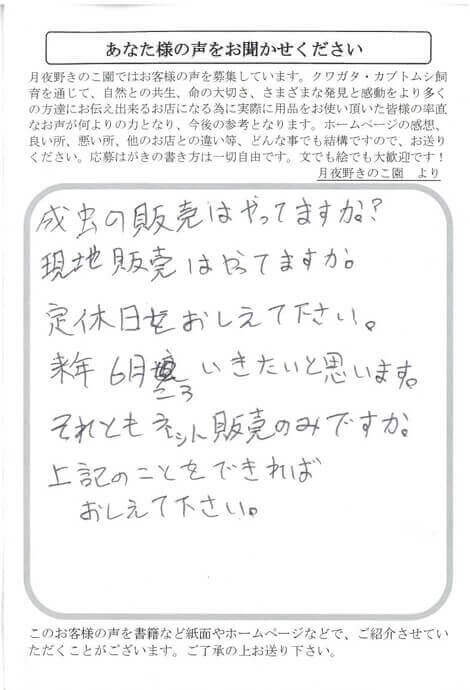 あなた様の声をお聞かせください
月夜野きのこ園ではお客様の声を募集しています。クワガタ・カブトムシ飼
育を通じて、自然との共生、命の大切さ、さまざまな発見と感動をより多く
の方達にお伝え出来るお店になる為に実際に用品をお使い頂いた皆様の率直
なお声が何よりの力となり、今後の参考となります。ホームページの感想、
良い所、悪い所、他のお店との違い等、どんな事でも結構ですので、お送り
ください。応募はがきの書き方は一切自由です。文でも絵でも大歓迎です！
月夜野きのこ園　より
成虫の販売はやってますか？
現地販売はやってますか。
定休日をおしえて下さい。
来年 6月ころ いきたいと思います。
それともネット販売のみですか。
上記のことをできれば
おしえて下さい。
このお客様の声を書籍など紙面やホームページなどで、ご紹介させてい
ただくことがございます。ご了承の上お送り下さい。